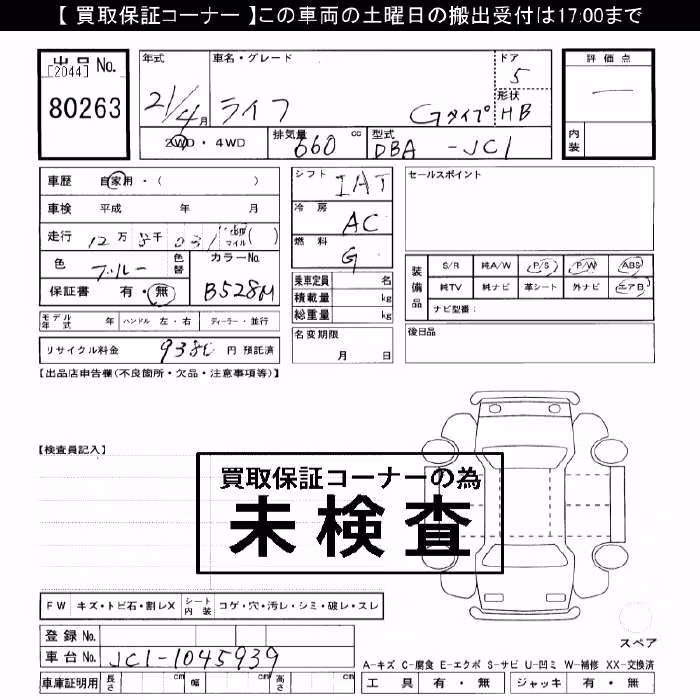 【 買取保証コーナー 】この車両の土曜日の搬出受付は17:00まで
出品 No.
[2044]
80263
年式 車名・グレード ドア
21/4月 ライフ Gタイプ 5
形状 HB
2WD・4WD 排気量 660 cc 型式 DBA -JC1
評価点
—
内装
車歴 自家用・( )
車検 平成 年 月
走行 12万 千 031 km マイル ( )
色 ブルー 色替 カラーNo. B528M
保証書 有・無
モデル年式 年 ハンドル 左・右 ディーラー・並行
リサイクル料金 9380 円 預託済
シフト IAT
冷房 AC
燃料 G
乗車定員 名
積載量 kg
総重量 kg
名変期限
月 日
セールスポイント
装備品 S/R 純A/W P/S P/W ABS
純TV 純ナビ 革シート 外ナビ エアB
ナビ型番:
後日品
【出品店申告欄(不良箇所・欠品・注意事項等)】
【検査員記入】
買取保証コーナーの為
未検査
FW キズ・トビ石・割レX シート内装 コゲ・穴・汚レ・シミ・破レ・スレ
登録 No.
車台 No. JC1-1045939
車庫証明用 長さ cm 幅 cm 高さ cm
スペア
A-キズ C-腐食 E-エクボ S-サビ U-凹ミ W-補修 XX-交換済
工具 有・無 ジャッキ 有・無